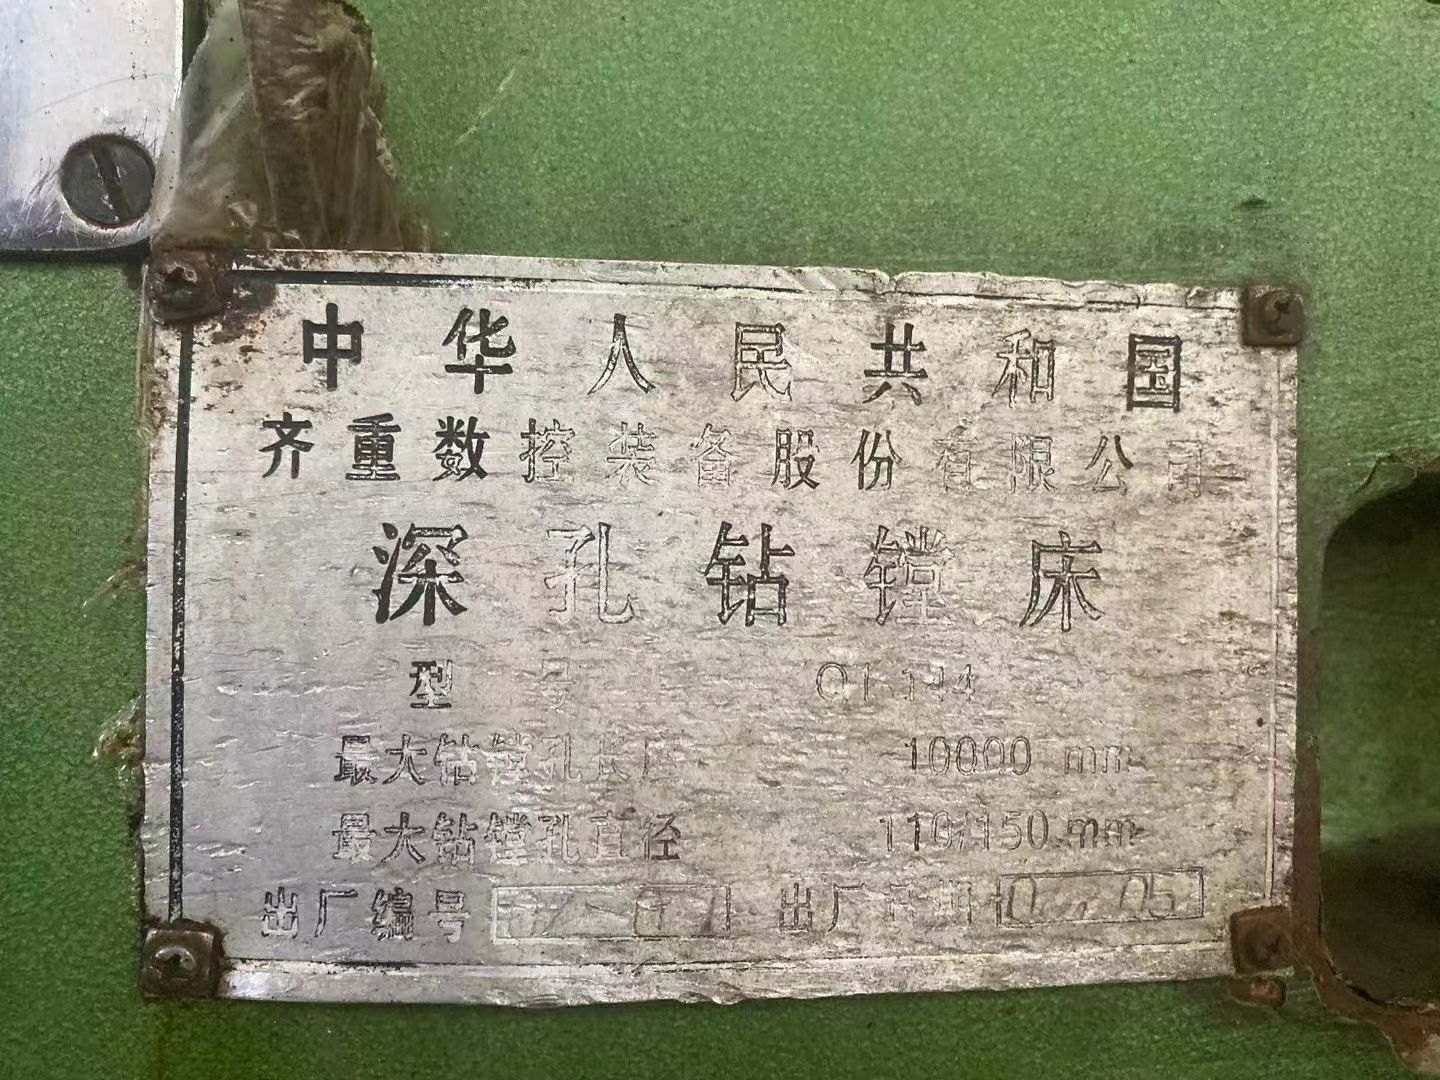 中华人民共和国
齐重数控装备股份有限公司
深孔钻镗床
型号
最大钻镗孔长度 10000 mm
最大钻镗孔直径 110/150 mm
出厂编号 出厂日期